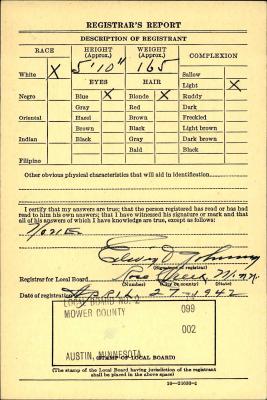 REGISTRAR'S REPORT
DESCRIPTION OF REGISTRANT
RACE HEIGHT (Approx.) WEIGHT (Approx.) COMPLEXION
White X 5'10" 165 Sallow
EYES HAIR Light X
Negro Blue X Blonde X Ruddy
Gray Red Dark
Oriental Hazel Brown Freckled
Brown Black Light brown
Indian Black Gray Dark brown
Bald Black
Filipino
Other obvious physical characteristics that will aid in identification
I certify that my answers are true; that the person registered has read or has had
read to him his own answers; that I have witnessed his signature or mark and that
all of his answers of which I have knowledge are true, except as follows:
None
(Signature of registrar)
Registrar for Local Board Rose Creek Minn.
(Number) (City or county) (State)
Date of registration April 27 1942
LOCAL BOARD NO. 2
MOWER COUNTY 099
002
AUSTIN, MINNESOTA
(STAMP OF LOCAL BOARD)
(The stamp of the Local Board having jurisdiction of the registrant
shall be placed in the above space)